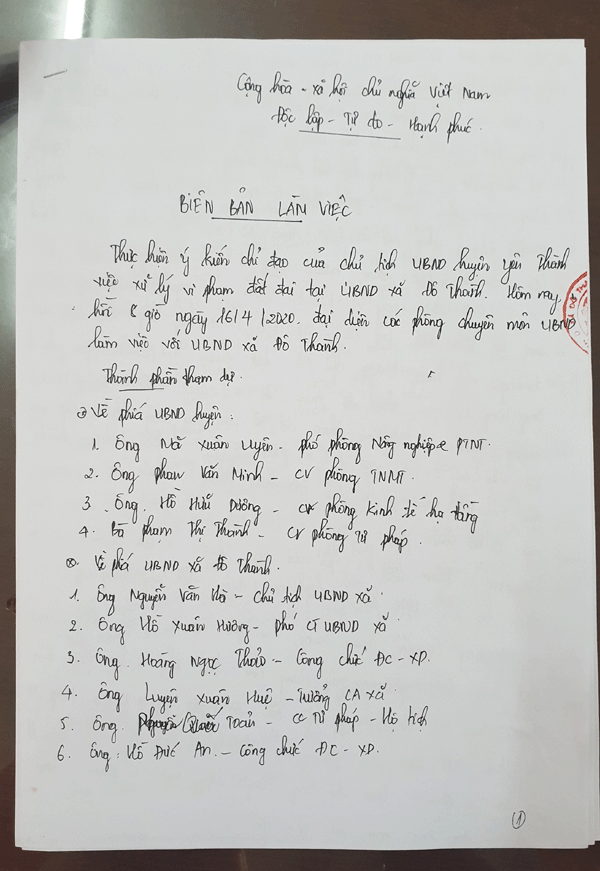 Cộng hòa - xã hội chủ nghĩa Việt Nam
Độc lập - Tự do - Hạnh phúc.
BIÊN BẢN LÀM VIỆC
Thực hiện ý kiến chỉ đạo của chủ tịch UBND huyện Yên Thành
việc xử lý vi phạm đất đai tại UBND xã Đô Thành. Hôm nay
hồi 8 giờ ngày 16/4/2020. đại diện các phòng chuyên môn UBND
làm việc với UBND xã Đô Thành.
Thành phần tham dự.
Về phía UBND huyện:
1. Ông Xuân Uyên - phó phòng Nông nghiệp & PTNT.
2. Ông Phan Văn Minh - CV phòng TNMT.
3. Ông. Hồ Hữu Dương - CV phòng Kinh tế hạ tầng
4. Bà Phạm Thị Thanh - CV phòng Tư pháp.
Về phía UBND xã Đô Thành.
1. Ông Nguyễn Văn - Chủ tịch UBND xã.
2. Ông Hồ Xuân Hương - Phó CT UBND xã
3. Ông. Hoàng Ngọc Thảo - Công chức ĐC - XD.
4. Ông Luyện Xuân Huê - Trưởng CA xã
5. Ông. Toản - CC Tư pháp - Hộ tịch
6. Ông: Hồ Đức An. - Công chức ĐC - XD.
1